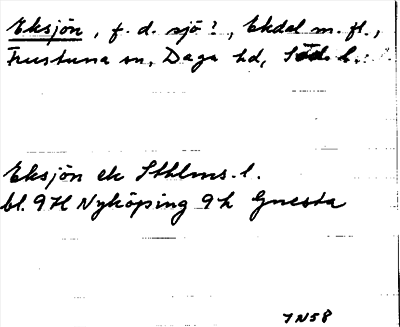 Eksjön, f. d. sjö?, Ekdal m. fl.,
Frustuna sn, Daga hd, Söd. l.
Eksjön ek Sthlms. l.
bl. 9H Nyköping 9h Gnesta
7N58